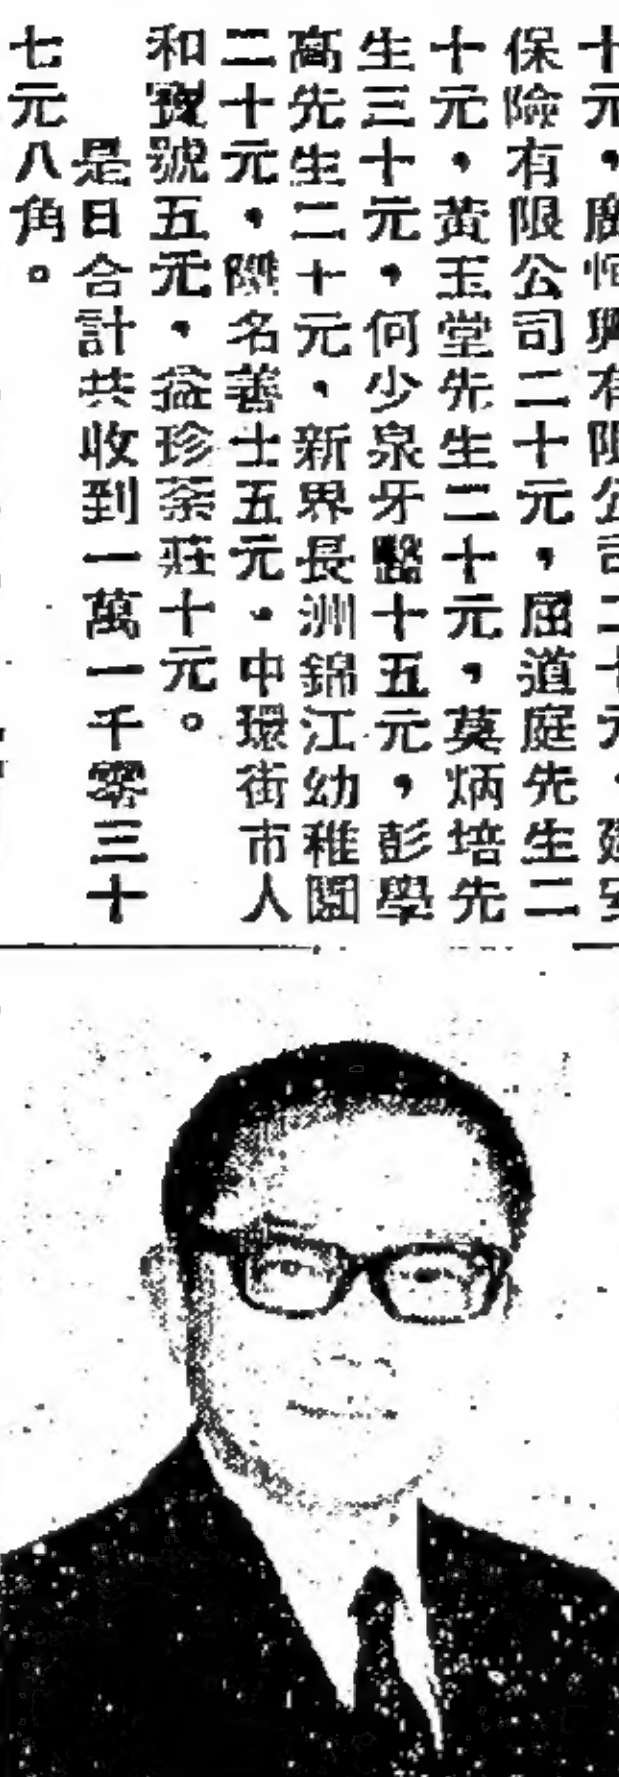 十元，廣恒興有限公司二十元，建安
保險有限公司二十元，屈道庭先生二
十元，黃玉堂先生二十元，莫炳培先
生三十元，何少泉牙醫十五元，彭學
高先生二十元，新界長洲錦江幼稚園
二十元，隱名善士五元，中環街市人
和寶號五元，益珍茶莊十元。
是日合計共收到一萬一千零三十
七元八角。